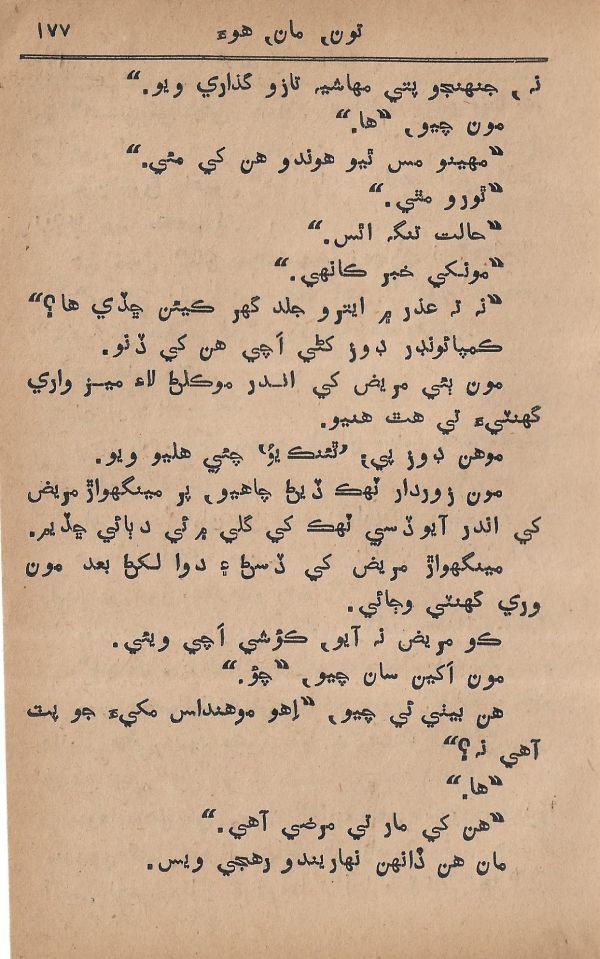 تون, مان, هوءَ ١٧٧
نہ, جنهنجو پتي مهاشيہ تازو گذاري ويو.“
مون چيو, ”ها.“
”مهينو مس ٿيو هوندو هن کي مئي.“
”ٿورو مٿي.“
”حالت تنگہ اٿس.“
”مونکي خبر ڪانهي.“
”نہ تہ عذر ۾ ايترو جلد گهر ڪيئن ڇڏي ها؟“
ڪمپائونڊر ڊوز کڻي اَچي هن کي ڏنو.
مون ٻئي مريض کي اندر موڪلڻ لاءِ ميز واري
گهنٽيءَ تي هٿ هنيو.
موهن ڊوز پي؛ ’ٿئنڪ يؤ‘ چئي هليو ويو.
مون زوردار ٽهڪ ڏيڻ چاهيو, پر مينگهواڙ مريض
کي اندر آيو ڏسي ٽهڪ کي گلي ۾ ئي دٻائي ڇڏيم.
مينگهواڙ مريض کي ڏسڻ ۽ دوا لکڻ بعد مون
وري گهنٽي وڄائي.
ڪو مريض نہ آيو, ڪؤشي اَچي ويئي.
مون اَکين سان چيو, ”چؤ.“
هن بيٺي ئي چيو, ”اِهو موهنداس مکيءَ جو پٽ
آهي نہ؟“
”ها.“
”هن کي مار تي مرضي آهي.“
مان هن ڏانهن نهاريندو رهجي ويس.